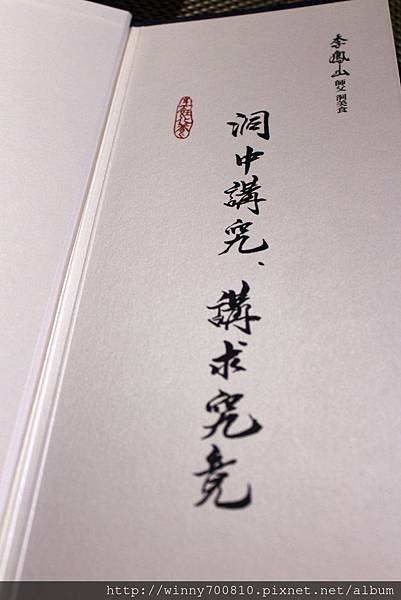 李鳳山師父 洞美食
洞中講究、講求究竟
http://winny700810.pixnet.net/album